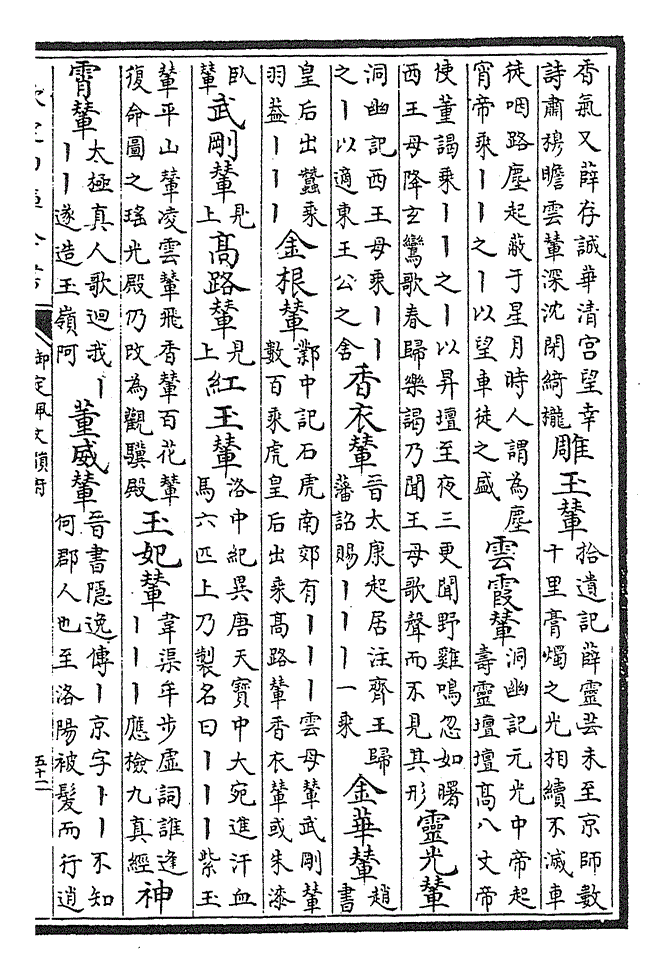 香氣又薛存誠華清宮望幸
詩肅穆瞻雲輦深沈閉綺櫳
雕玉輦
拾遺記薛靈芸未至京師數
十里膏燭之光相續不滅車
徒咽路塵起蔽于星月時人謂為塵
宵帝乘丨丨之丨以望車徒之盛
雲霞輦
洞幽記元光中帝起
壽靈壇壇高八丈帝
使董謁乘丨丨之丨以昇壇至夜三更聞野雞鳴忽如曙
西王母降玄鸞歌春歸樂謁乃聞王母歌聲而不見其形
靈光輦
洞幽記西王母乘丨丨
之丨以適東王公之舍
香衣輦
晉太康起居注齊王歸
藩詔賜丨丨丨一乘
金華輦
趙
書
皇后出蠶乘
羽蓋丨丨丨
金根輦
鄴中記石虎南郊有丨丨丨雲母輦武剛輦
數百乘虎皇后出乘高路輦香衣輦或朱漆
臥
輦
武剛輦
見
上
高路輦
見
上
紅玉輦
洛中紀異唐天寶中大宛進汗血
馬六匹上乃製名曰丨丨丨紫玉
輦平山輦凌雲輦飛香輦百花輦
復命圖之瑤光殿乃改為觀驥殿
玉妃輦
韋渠牟步虛詞誰逢
丨丨丨應檢九真經
神
霄輦
太極真人歌迴我丨
丨丨遂造玉嶺阿
董威輦
晉書隱逸傳丨京字丨丨不知
何郡人也至洛陽被髮而行逍
御定佩文韻府
五十二